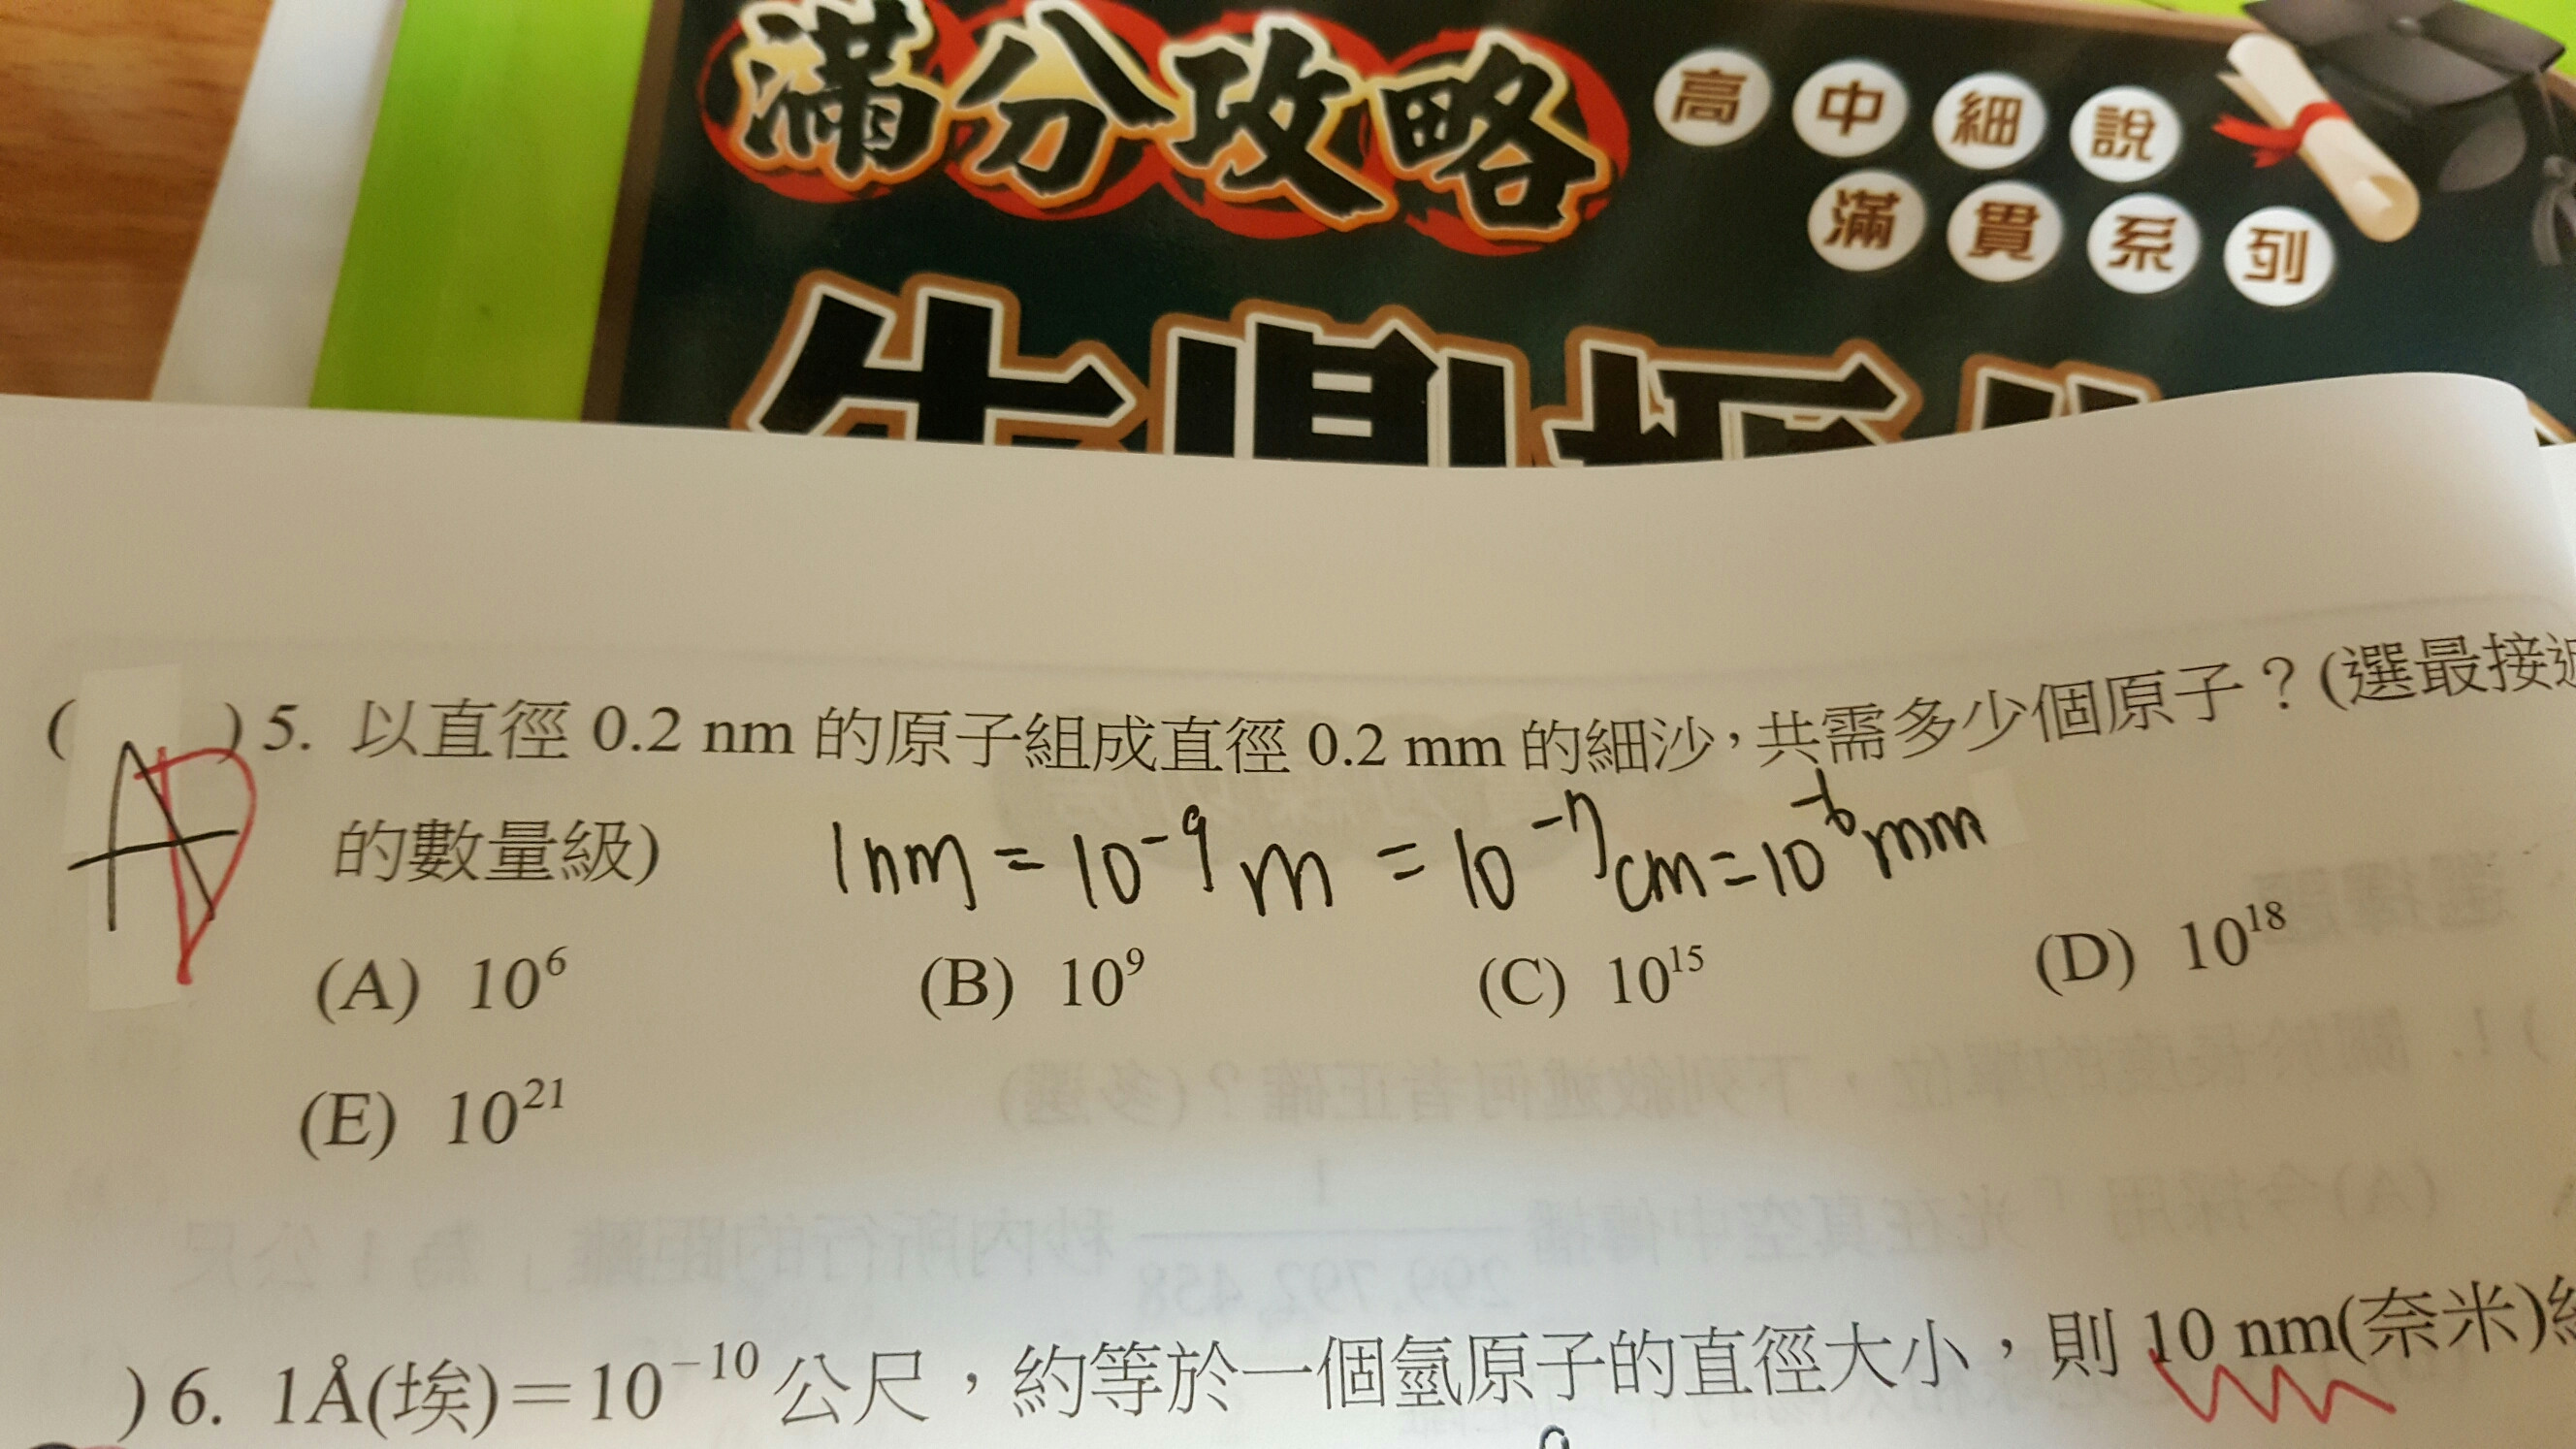 滿分攻略
高中細說
滿貫系列
A D
( )5. 以直徑 0.2 nm 的原子組成直徑 0.2 mm 的細沙,共需多少個原子?(選最接近
的數量級)
1nm = 10⁻⁹ m = 10⁻⁷ cm = 10⁻⁶ mm
(A) 10⁶ (B) 10⁹ (C) 10¹⁵ (D) 10¹⁸
(E) 10²¹
)6. 1Å(埃)=10⁻¹⁰ 公尺,約等於一個氫原子的直徑大小,則 10 nm(奈米)約